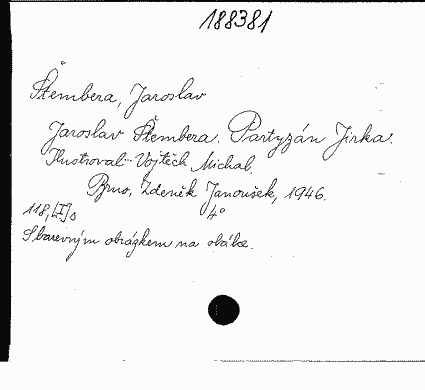 188381
Štembera, Jaroslav
Jaroslav Štembera. Partyzán Jirka.
Ilustroval Vojtěch Michal.
Brno, Zdeněk Janoušek, 1946.
118, [I] s 4°
S barevným obrázkem na obálce.